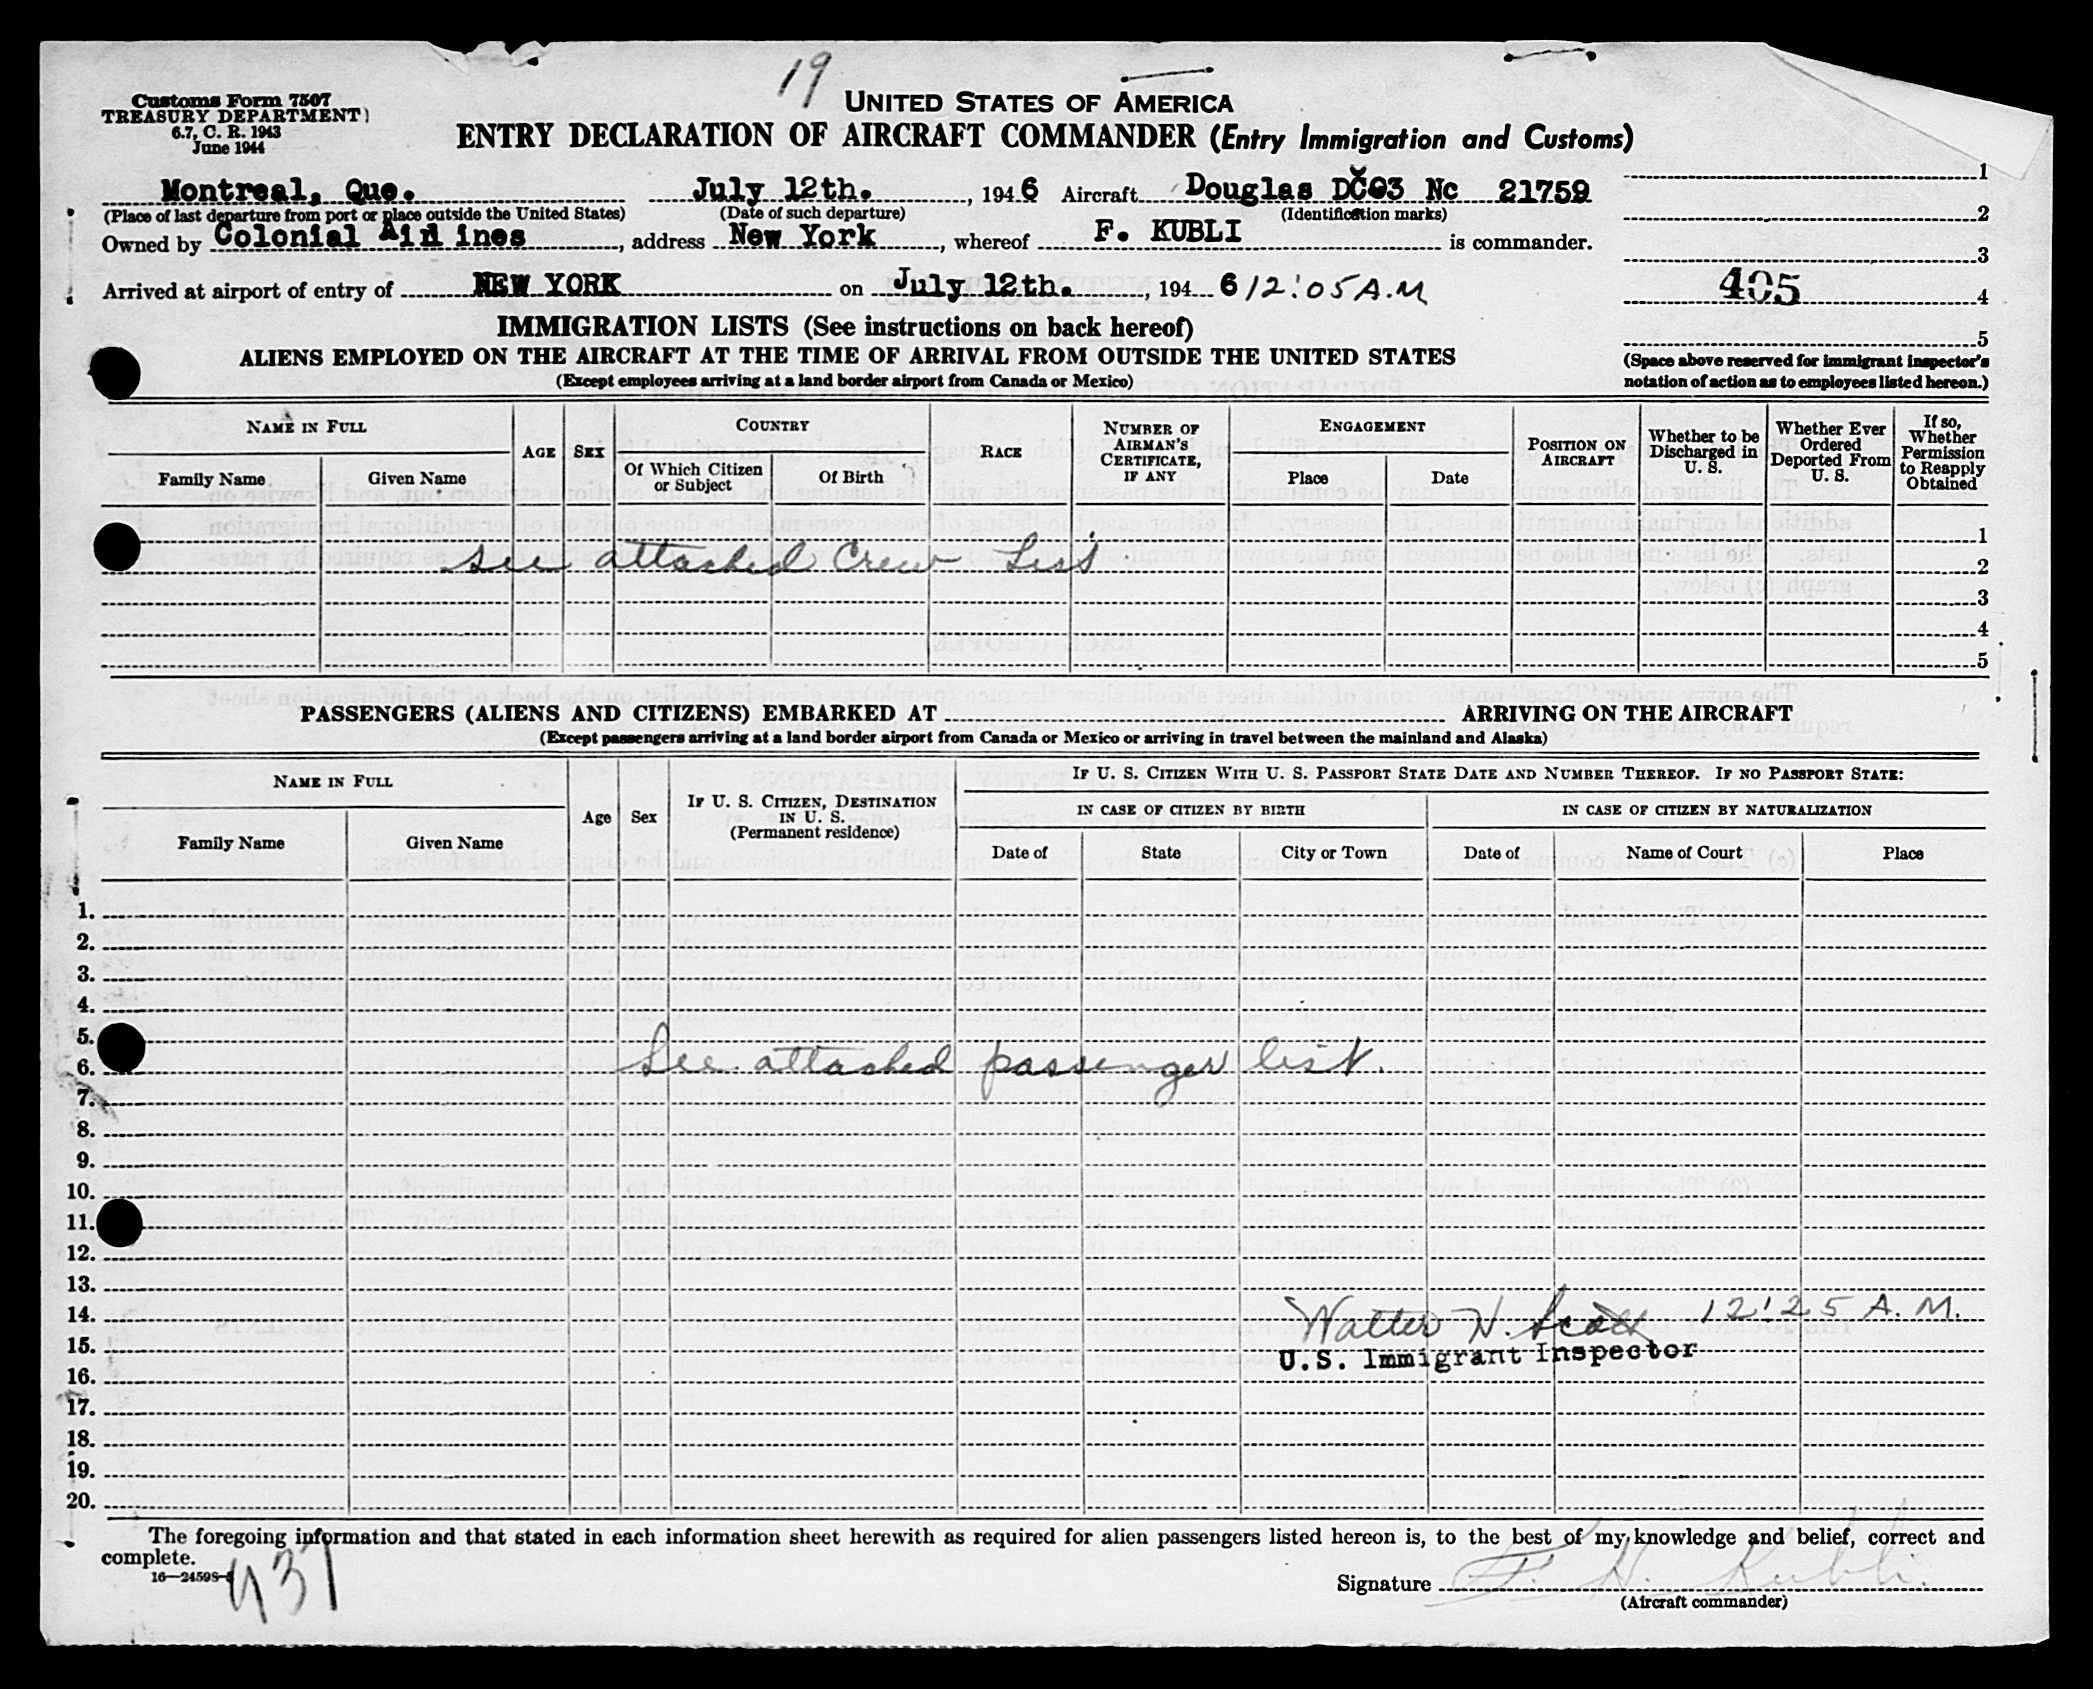 19
Customs Form 7507
TREASURY DEPARTMENT
6.7, C. R. 1943
June 1944
UNITED STATES OF AMERICA
ENTRY DECLARATION OF AIRCRAFT COMMANDER (Entry Immigration and Customs)
Montreal, Que. July 12th. , 1946 Aircraft Douglas DC-3 Nc 21759
(Place of last departure from port or place outside the United States) (Date of such departure) (Identification marks)
Owned by Colonial Airlines , address New York , whereof F. KUBLI is commander.
Arrived at airport of entry of NEW YORK on July 12th. , 194 6 12:05 A.M
1
2
3
405 4
5
(Space above reserved for immigrant inspector's
notation of action as to employees listed hereon.)
IMMIGRATION LISTS (See instructions on back hereof)
ALIENS EMPLOYED ON THE AIRCRAFT AT THE TIME OF ARRIVAL FROM OUTSIDE THE UNITED STATES
(Except employees arriving at a land border airport from Canada or Mexico)
NAME IN FULL
Family Name Given Name
AGE
SEX
COUNTRY
Of Which Citizen or Subject
Of Birth
RACE
NUMBER OF AIRMAN'S CERTIFICATE, IF ANY
ENGAGEMENT
Place Date
POSITION ON AIRCRAFT
Whether to be Discharged in U. S.
Whether Ever Ordered Deported From U. S.
If so, Whether Permission to Reapply Obtained
1
see attached Crew List 2
3
4
5
PASSENGERS (ALIENS AND CITIZENS) EMBARKED AT ARRIVING ON THE AIRCRAFT
(Except passengers arriving at a land border airport from Canada or Mexico or arriving in travel between the mainland and Alaska)
NAME IN FULL
Family Name Given Name
Age
Sex
IF U. S. CITIZEN, DESTINATION IN U. S.
(Permanent residence)
IF U. S. CITIZEN WITH U. S. PASSPORT STATE DATE AND NUMBER THEREOF. IF NO PASSPORT STATE:
IN CASE OF CITIZEN BY BIRTH IN CASE OF CITIZEN BY NATURALIZATION
Date of State City or Town Date of Name of Court Place
1.
2.
3.
4.
5.
6. See attached passenger list.
7.
8.
9.
10.
11.
12.
13.
14. Walter H. Scott 12:25 A.M.
15. U.S. Immigrant Inspector
16.
17.
18.
19.
20.
The foregoing information and that stated in each information sheet herewith as required for alien passengers listed hereon is, to the best of my knowledge and belief, correct and
complete.
16—24598-
937
Signature F. H. Kubli
(Aircraft commander)